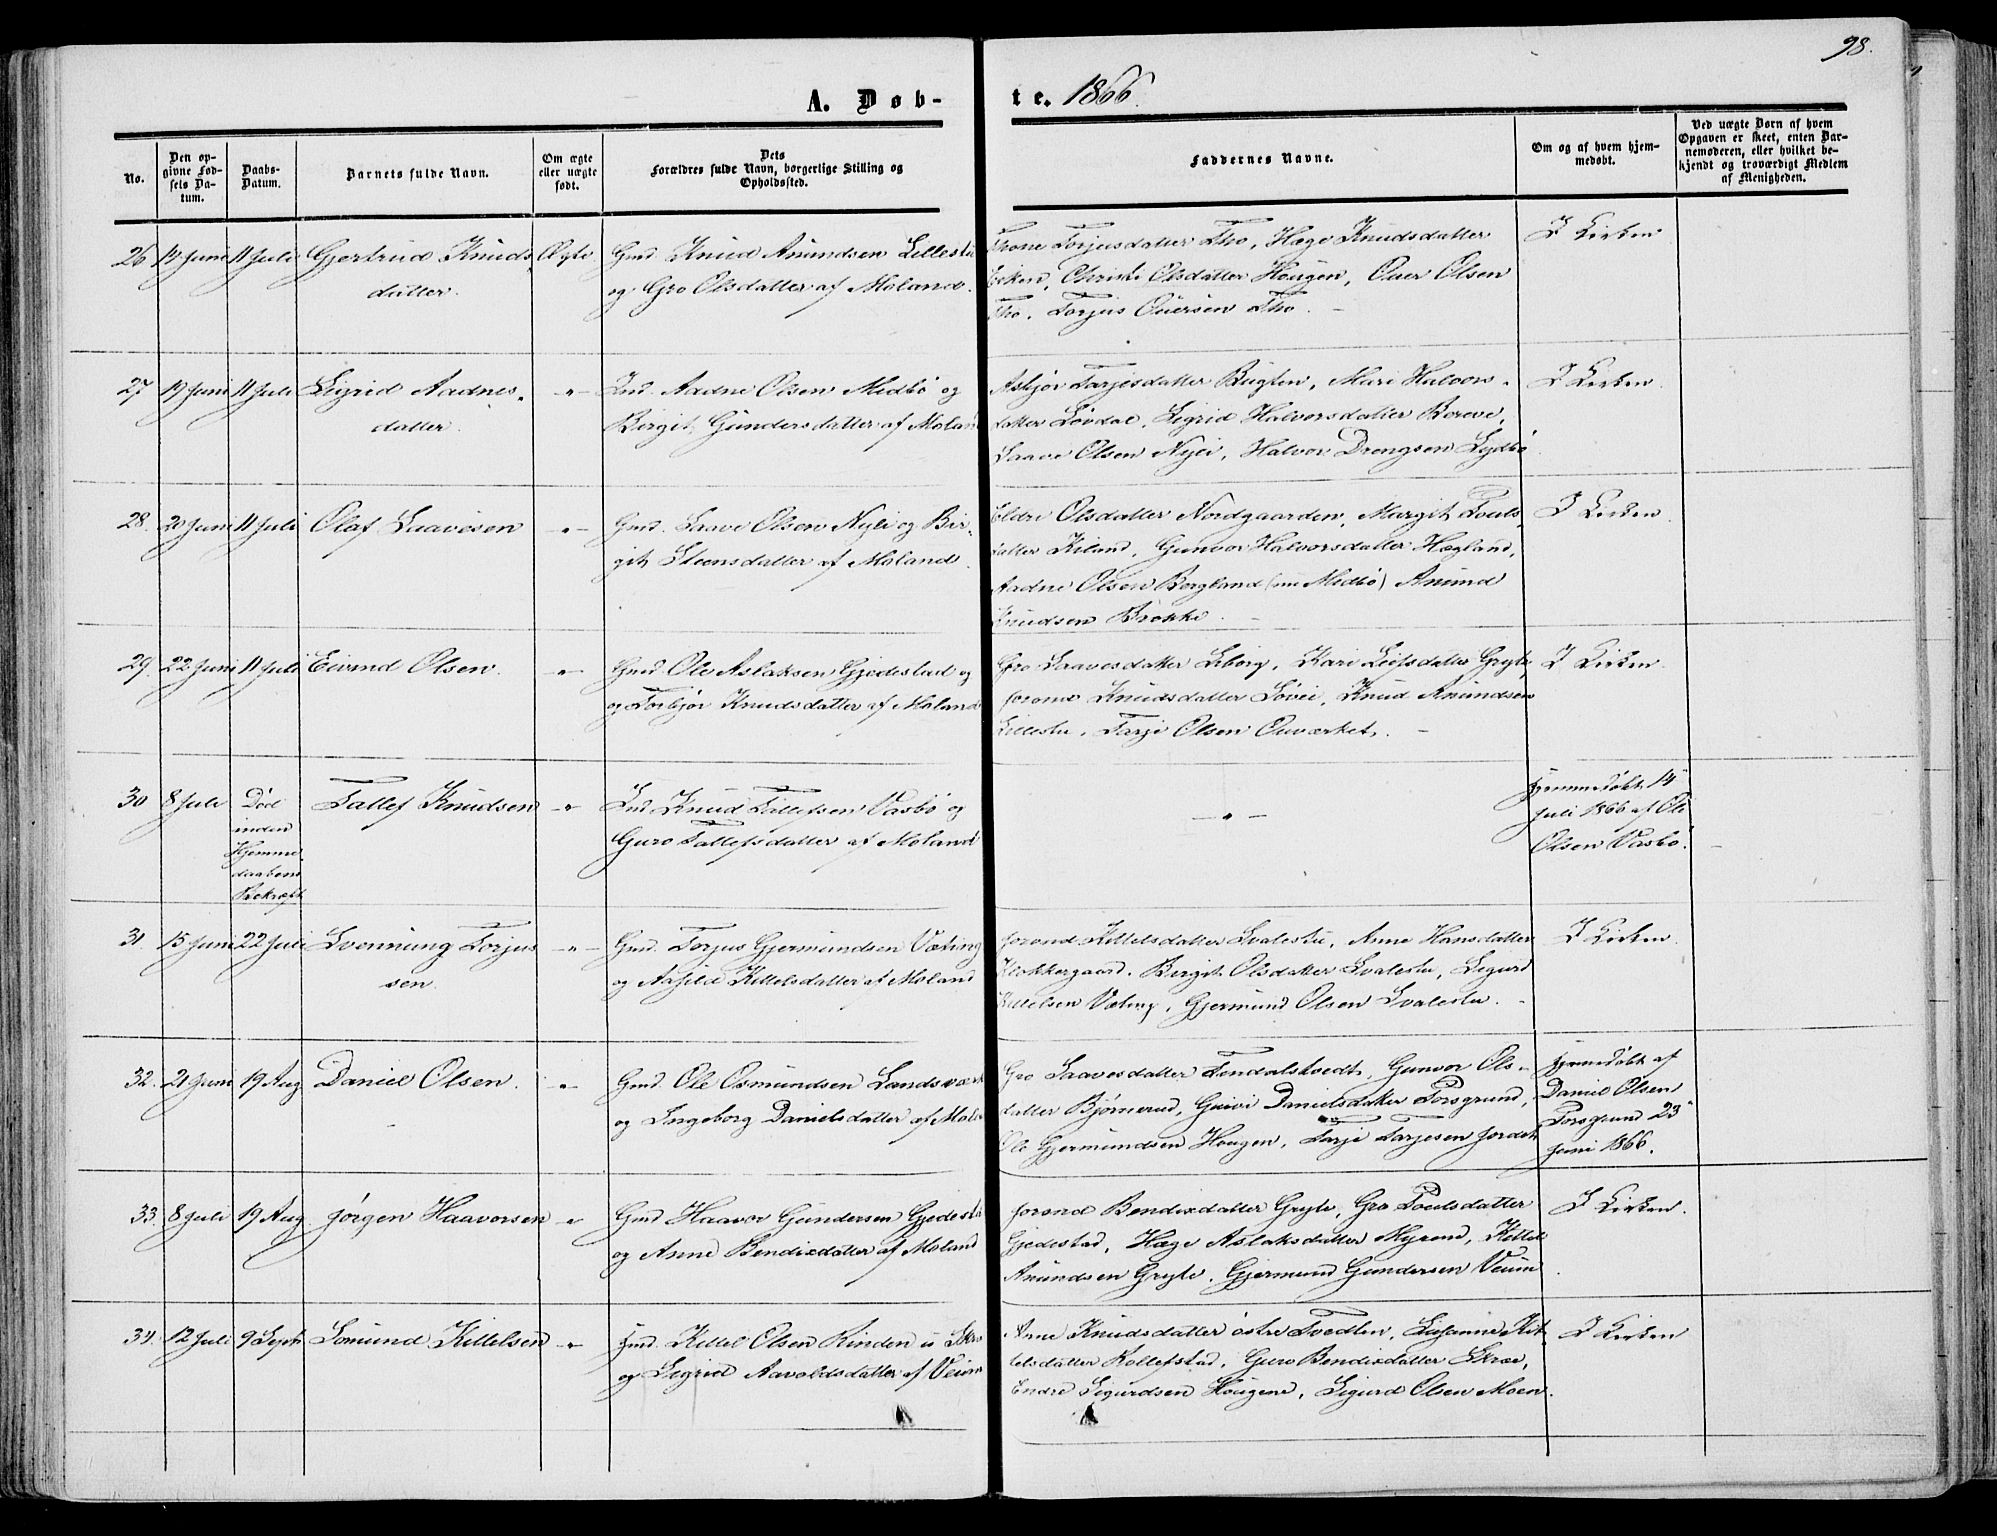 98.
A. Døb-
te. 1866.
No.
Den opgivne Fødsels Datum.
Daabs-Datum.
Barnets fulde Navn.
Om ægte eller uægte født.
Dets Forældres fulde Navn, borgerlige Stilling og Opholdssted.
Faddernes Navne.
Om og af hvem hjemmedøbt.
Ved uægte Børn af hvem Opgaven er skeet, enten Barnemoderen, eller hvilket bekjendt og troværdigt Medlem af Menigheden.
26 10 Juni 11 Juli Gjertrud Knuds- Ægte Gmd. Knud Anundsen Lillestu
datter. og Gro Olsdatter af Moland.
Throne Torjusdatter Tho, Hæge Knudsdatter I Kirken
Olsdatter Hougen, Ouer Olsen
Tho. Torjus Ouersen Tho. -
27 19 Juni 11 Juli Sigrid Aadnes- -"- Ind. Aadne Olsen Midbø og
datter. Birgit Gundersdatter af Moland
Asbjør Tarjesdatter Bugten, Mari Halvors- I Kirken.
datter Løvdal, Sigrid Halvorsdatter Boreve,
Saave Olsen Nyli, Halvor Drengsen Lydbø
28. 20 Juni 11 Juli Olaf Saavesen -"- Gmd. Saave Olsen Nyli og Bir-
git Steensdatter af Moland.
Eldri Olsdatter Nordgaarden, Margit Pouls- I Kirken.
datter Kiland, Gunvor Halvorsdatter Hægland,
Aadne Olsen Bergland (nu Midbø) Anund
Knudsen Brokke. -
29. 22 Juni 11 Juli Eivind Olsen. -"- Gmd. Ole Aslaksen Gjedestad og
og Torbjør Knudsdatter af Moland
Gro Saavesdatter Liborg, Kari Leifsdatter Gryte, I Kirken.
Jorond Knudsdatter Løvei, Knud Anundsen
Lillestu, Tarje Olsen Ouværket. -
30 8 Juli Død Tallef Knudsen -"- Ind. Knud Tallefsen Vasbø og
inden Guro Tallefsdatter af Moland
Hjemme
daabens
Bekræft
-"-
Hjemmedøbt 14
Juli 1866 af Ole
Olsen Vasbø.
31. 15 Juni 22 Juli Svennung Torjus -"- Gmd. Torjus Gjermundsen Væting
sen. og Aasild Kittelsdatter af Moland
Jorond Kittelsdatter Svalestu, Anne Hansdatter I Kirken.
Klokkergaard. Birgit Olsdatter Svalestu, Sigurd
Kittelsen Væting, Gjermund Olsen Svalestu. -
32. 21 Juni 19 Aug Daniel Olsen. -"- Gmd. Ole Osmundsen Landsværk
og Ingeborg Danielsdatter af Mola
Gro Saavesdatter Tendalstvedt, Gunvor Ols- Hjemdøbt af
datter Bjørnerud, Guivi Danielsdatter Porsgrund, Daniel Olsen
Ole Gjermundsen Hougen, Tarje Tarjesen Jordet Porsgrund 23"
Juni 1866.
33. 8 Juli 19 Aug Jørgen Haavorsen -"- Gmd. Haavor Gundersen Gjedesta
og Anne Bendixdatter af Moland
Jorond Bendixdatter Gryte, Gro Poulsdatter I Kirken.
Gjedestad, Hæge Aslaksdatter Myrend, Kittel
Anundsen Gryte, Gjermund Gundersen Veum
34. 12 Juli 9 Sept. Somund Kittelsen -"- Hmd. Kittel Olsen Rinden u Skro
og Sigrid Aavoldsdatter af Veum
Anne Knudsdatter østre Tvedten, Susanne Kit- I Kirken
telsdatter Rollefstad, Guro Bendixdatter Skroe,
Endre Sigurdsen Hougene, Sigurd Olsen Moen.